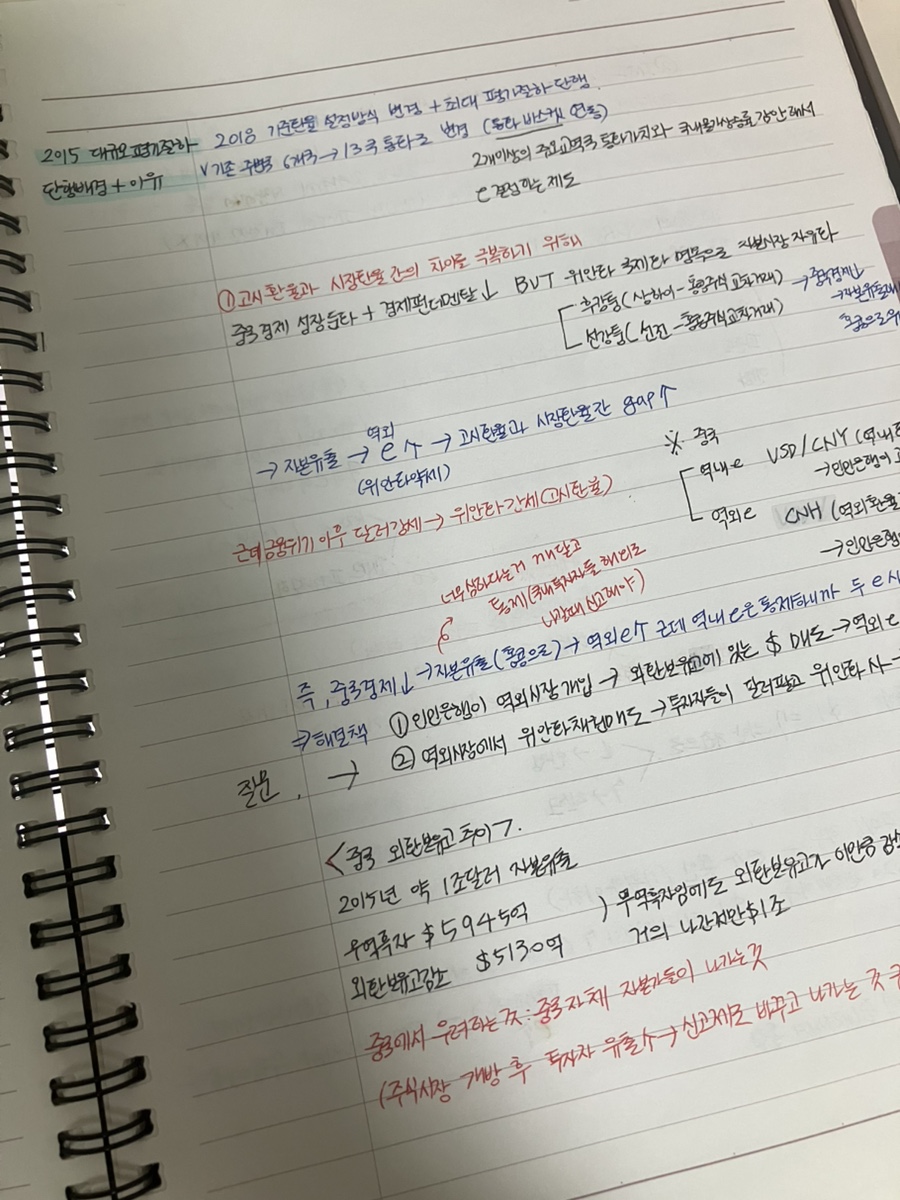 2015 대규모 평가절하
단행배경 + 이유
2018 기준환율 설정방식 변경 + 최대 평가절하 단행.
∨ 기존 주변국 6개국 → 13국 통화로 변경 (통화바스켓 연동)
2개이상의 주요교역국 통화가치와 국내물가상승률 감안해서
e 결정하는 제도
① 고시환율과 시장환율간의 차이를 극복하기 위해
중국경제 성장둔화 + 경제펀더멘탈↓ BUT 위안화 국제화 명목으로 자본시장 자유화
후강퉁(상하이-홍콩주식교차거래) → 중국경제↓
선강퉁(선전-홍콩주식교차거래) → 자본유출
홍콩으로
→ 자본유출 → 역외 e↑ → 고시환율과 시장환율간 gap↑
(위안화약세)
※ 중국
역내e USD/CNY (역내
→ 인민은행이 고
역외e CNH (역외환율
→ 인민은행
근데 금융위기 이후 달러강세 → 위안화강세(고시환율)
너무 심하다는거 깨닫고
통제(국내투자자들 해외로
나갈때 신고해야)
즉, 중국경제↓ → 자본유출(홍콩으로) → 역외e↑ 근데 역내e은 통제하니까 두 e
⇒ 해결책 ① 인민은행이 역외시장개입 → 외환보유고에 있는 $ 매도 → 역외e
② 역외시장에서 위안화채권매도 → 투자자들이 달러팔고 위안화 사 →
질문. →
<중국 외환보유고 추이>.
2015년 약 1조달러 자본유출
무역흑자 $5945억 ) 무역흑자임에도 외환보유고가 이만큼 감소
외환보유고감소 $5130억 거의 나간자만 $1조
중국에서 우려하는것 : 중국자체 자본가들이 나가는것
(주식시장 개방 후 투자자 유출↑ → 신고제로 바꾸고 나가는 것